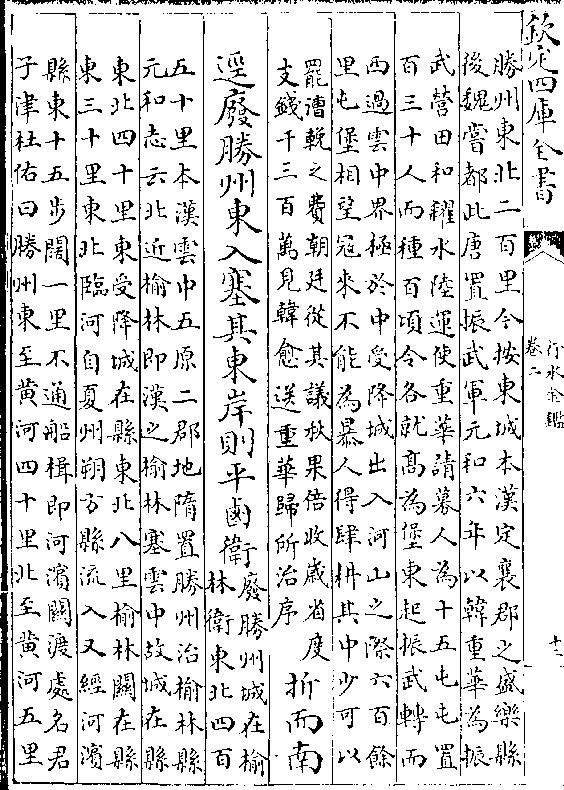 欽定四庫全書
行水金鑑
卷二
十二
勝州東北二百里今按東城本漢定襄郡之盛樂縣
後魏嘗都此唐置振武軍元和六年以韓重華為振
武營田和糴水陸運使重華請募人為十五屯屯置
百三十人而種百頃令各就高為堡東起振武轉而
西過雲中界極於中受降城出入河山之際六百餘
里屯堡相望寇來不能為暴人得肆耕其中少可以
罷漕輓之費朝廷從其議秋果倍收歲省度
支錢千三百萬見韓愈送重華歸所治序
折而南
逕廢勝州東入塞其東岸則平鹵衛
廢勝州城在榆
林衛東北四百
五十里本漢雲中五原二郡地隋置勝州治榆林縣
元和志云北近榆林即漢之榆林塞雲中故城在縣
東北四十里東受降城在縣東北八里榆林關在縣
東三十里東北臨河自夏州朔方縣流入又經河濱
縣東十五步闊一里不通船楫即河濱關渡處名君
子津杜佑曰勝州東至黄河四十里北至黄河五里